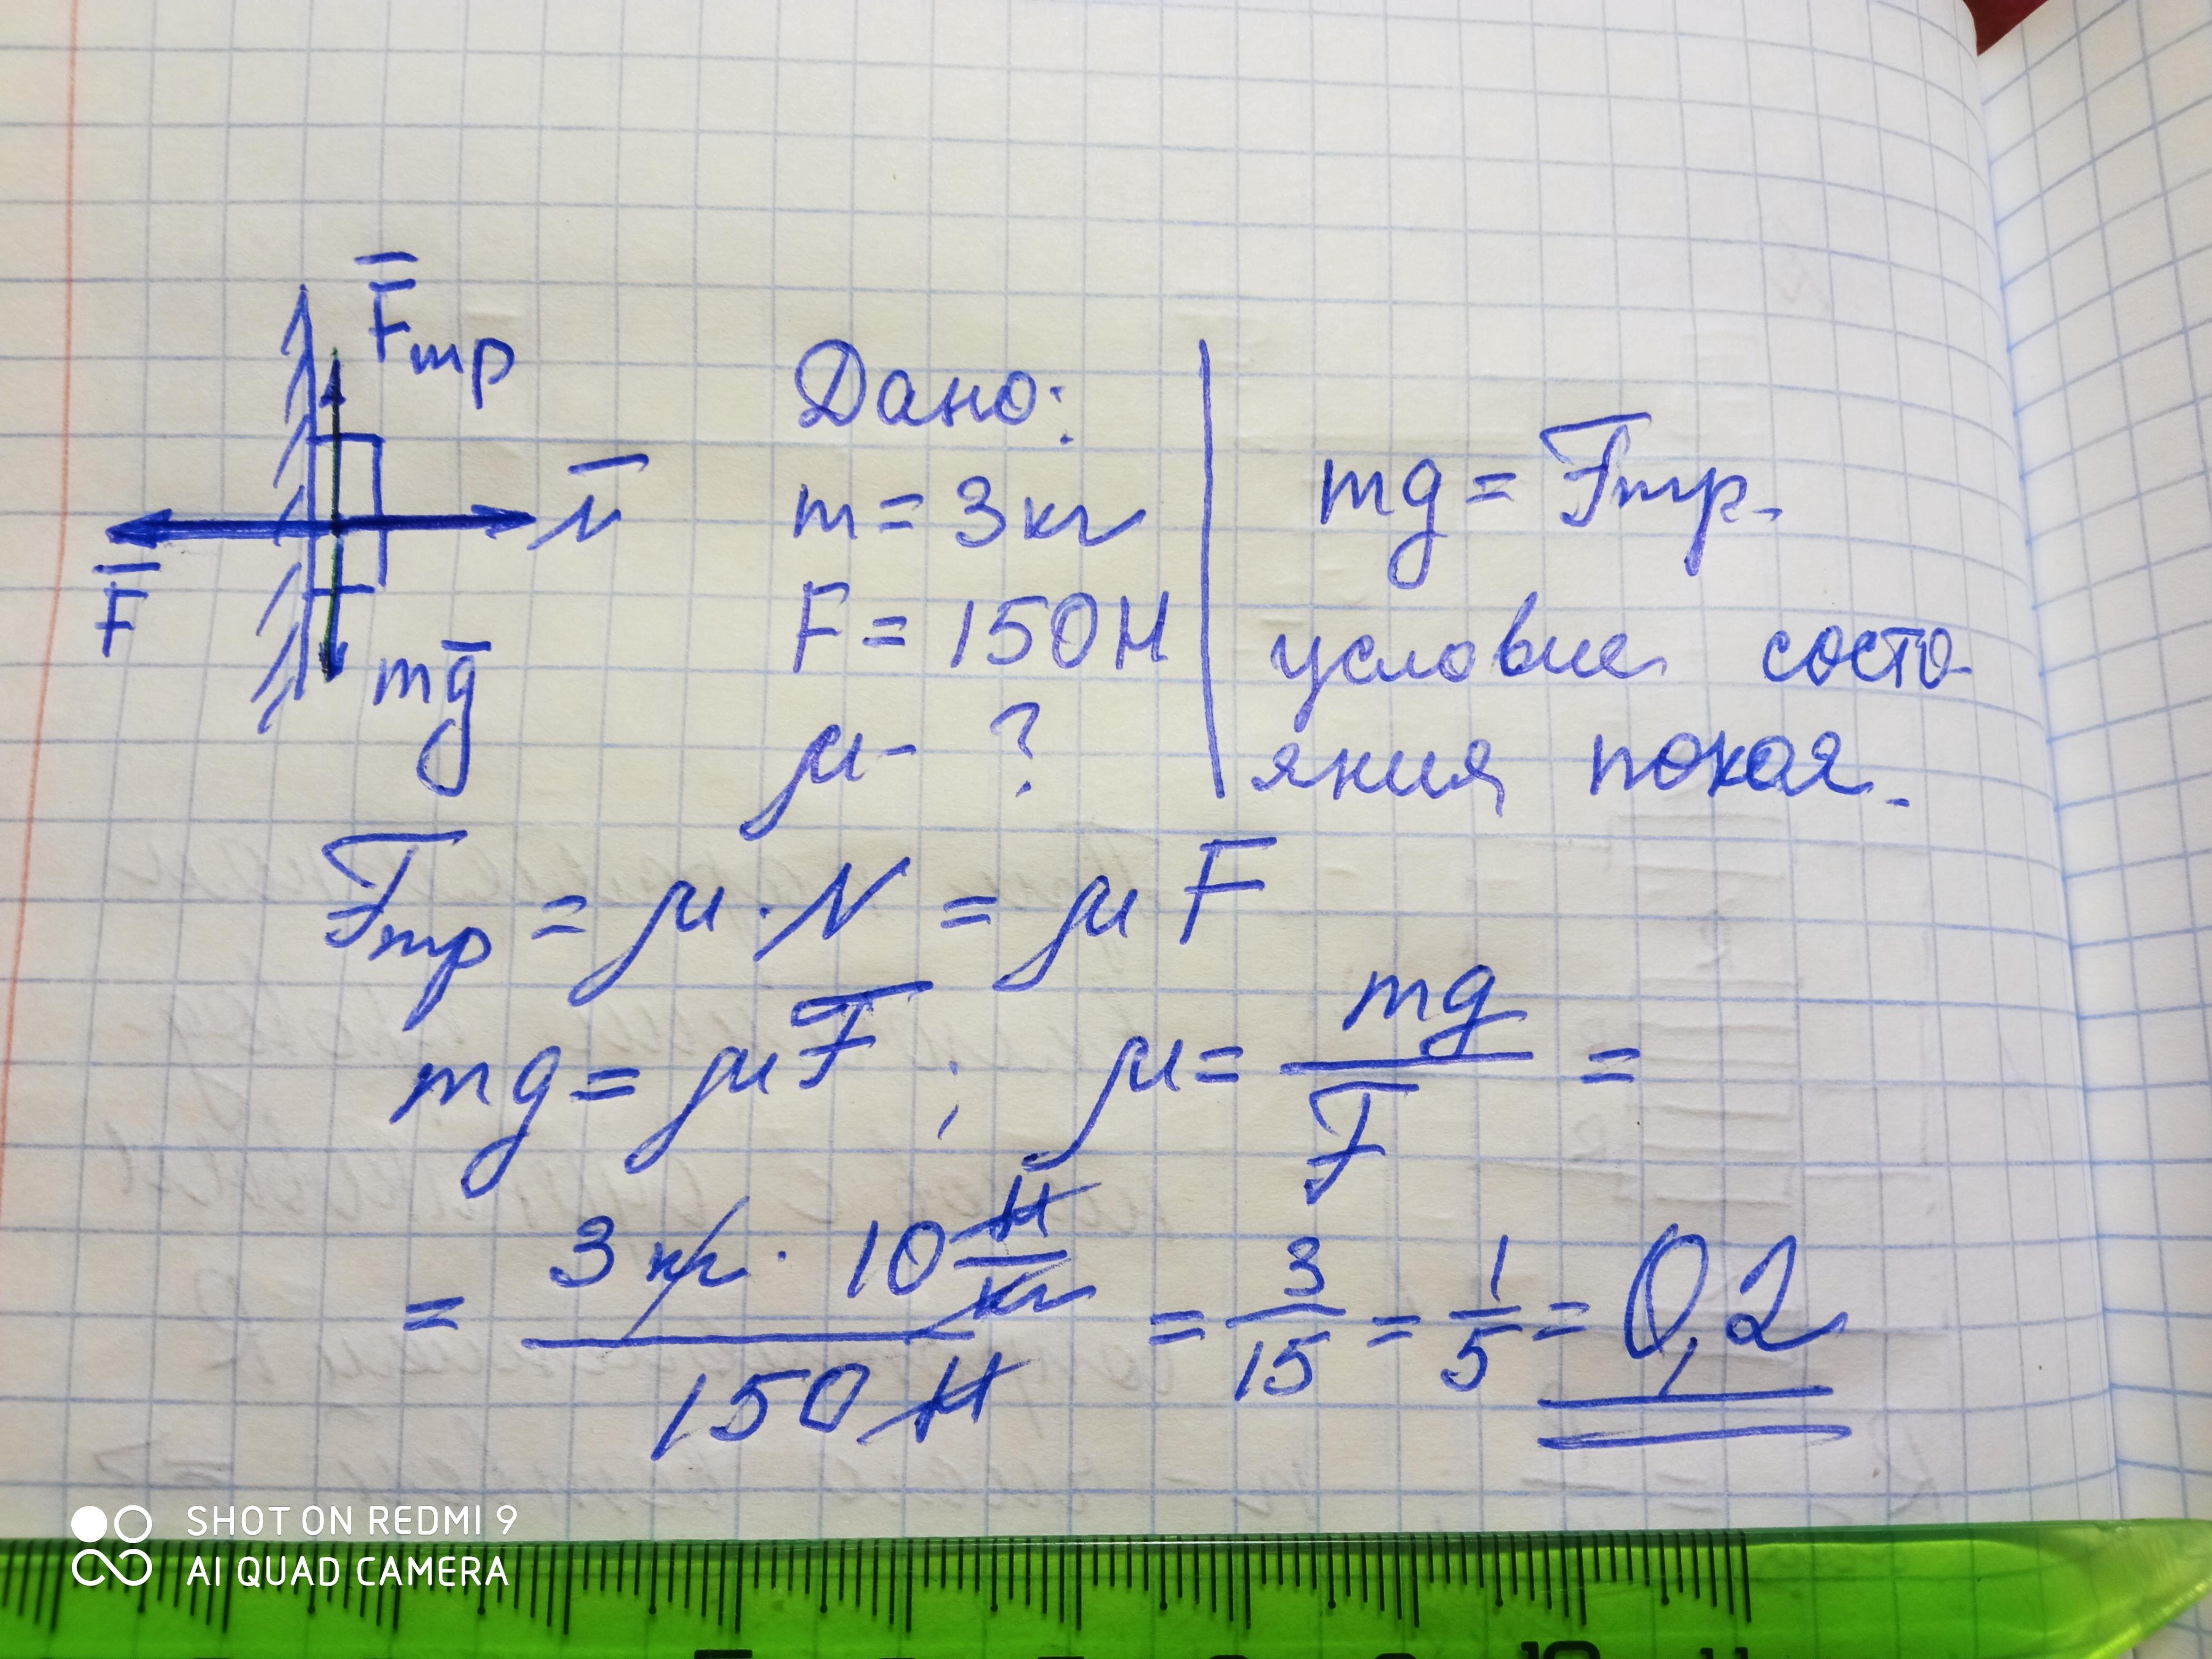 F̅тр
N̅
F̅
mg̅
Дано:
m = 3кг
F = 150Н
μ - ?
mg = Fтр.
условие состо-
яния покоя.
Fтр = μ · N = μF
mg = μF ; μ = mg/F =
= 3 кг · 10 Н/кг / 150 Н = 3/15 = 1/5 = 0,2
SHOT ON REDMI 9
AI QUAD CAMERA